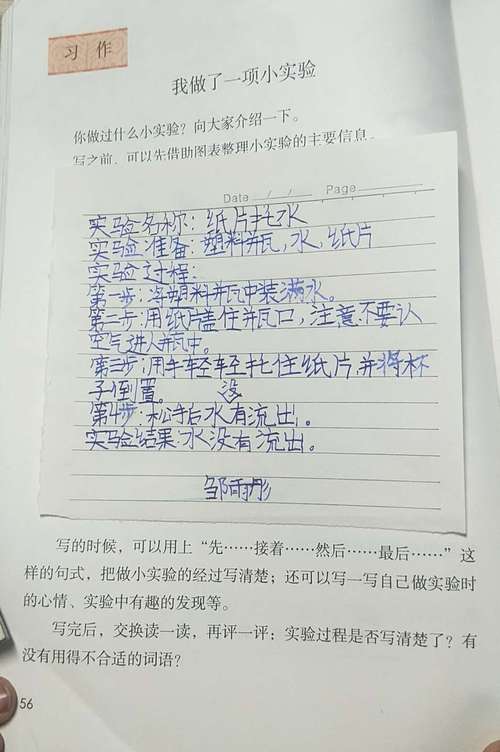 习作
我做了一项小实验
你做过什么小实验？向大家介绍一下。
写之前，可以先借助图表整理小实验的主要信息。
Date / / Page
实验名称：纸片托水
实验准备：塑料瓶，水，纸片
实验过程：
第一步：将塑料瓶中装满水。
第二步：用纸片盖住瓶口，注意不要认
空气进入瓶中。
第三步：用手轻轻托住纸片，并将杯
子倒置。 没
第4步：松手后水有流出。
实验结果：水没有流出。
邹雨彤
写的时候，可以用上“先……接着……然后……最后……”这
样的句式，把做小实验的经过写清楚；还可以写一写自己做实验时
的心情、实验中有趣的发现等。
写完后，交换读一读，再评一评：实验过程是否写清楚了？有
没有用得不合适的词语？
56